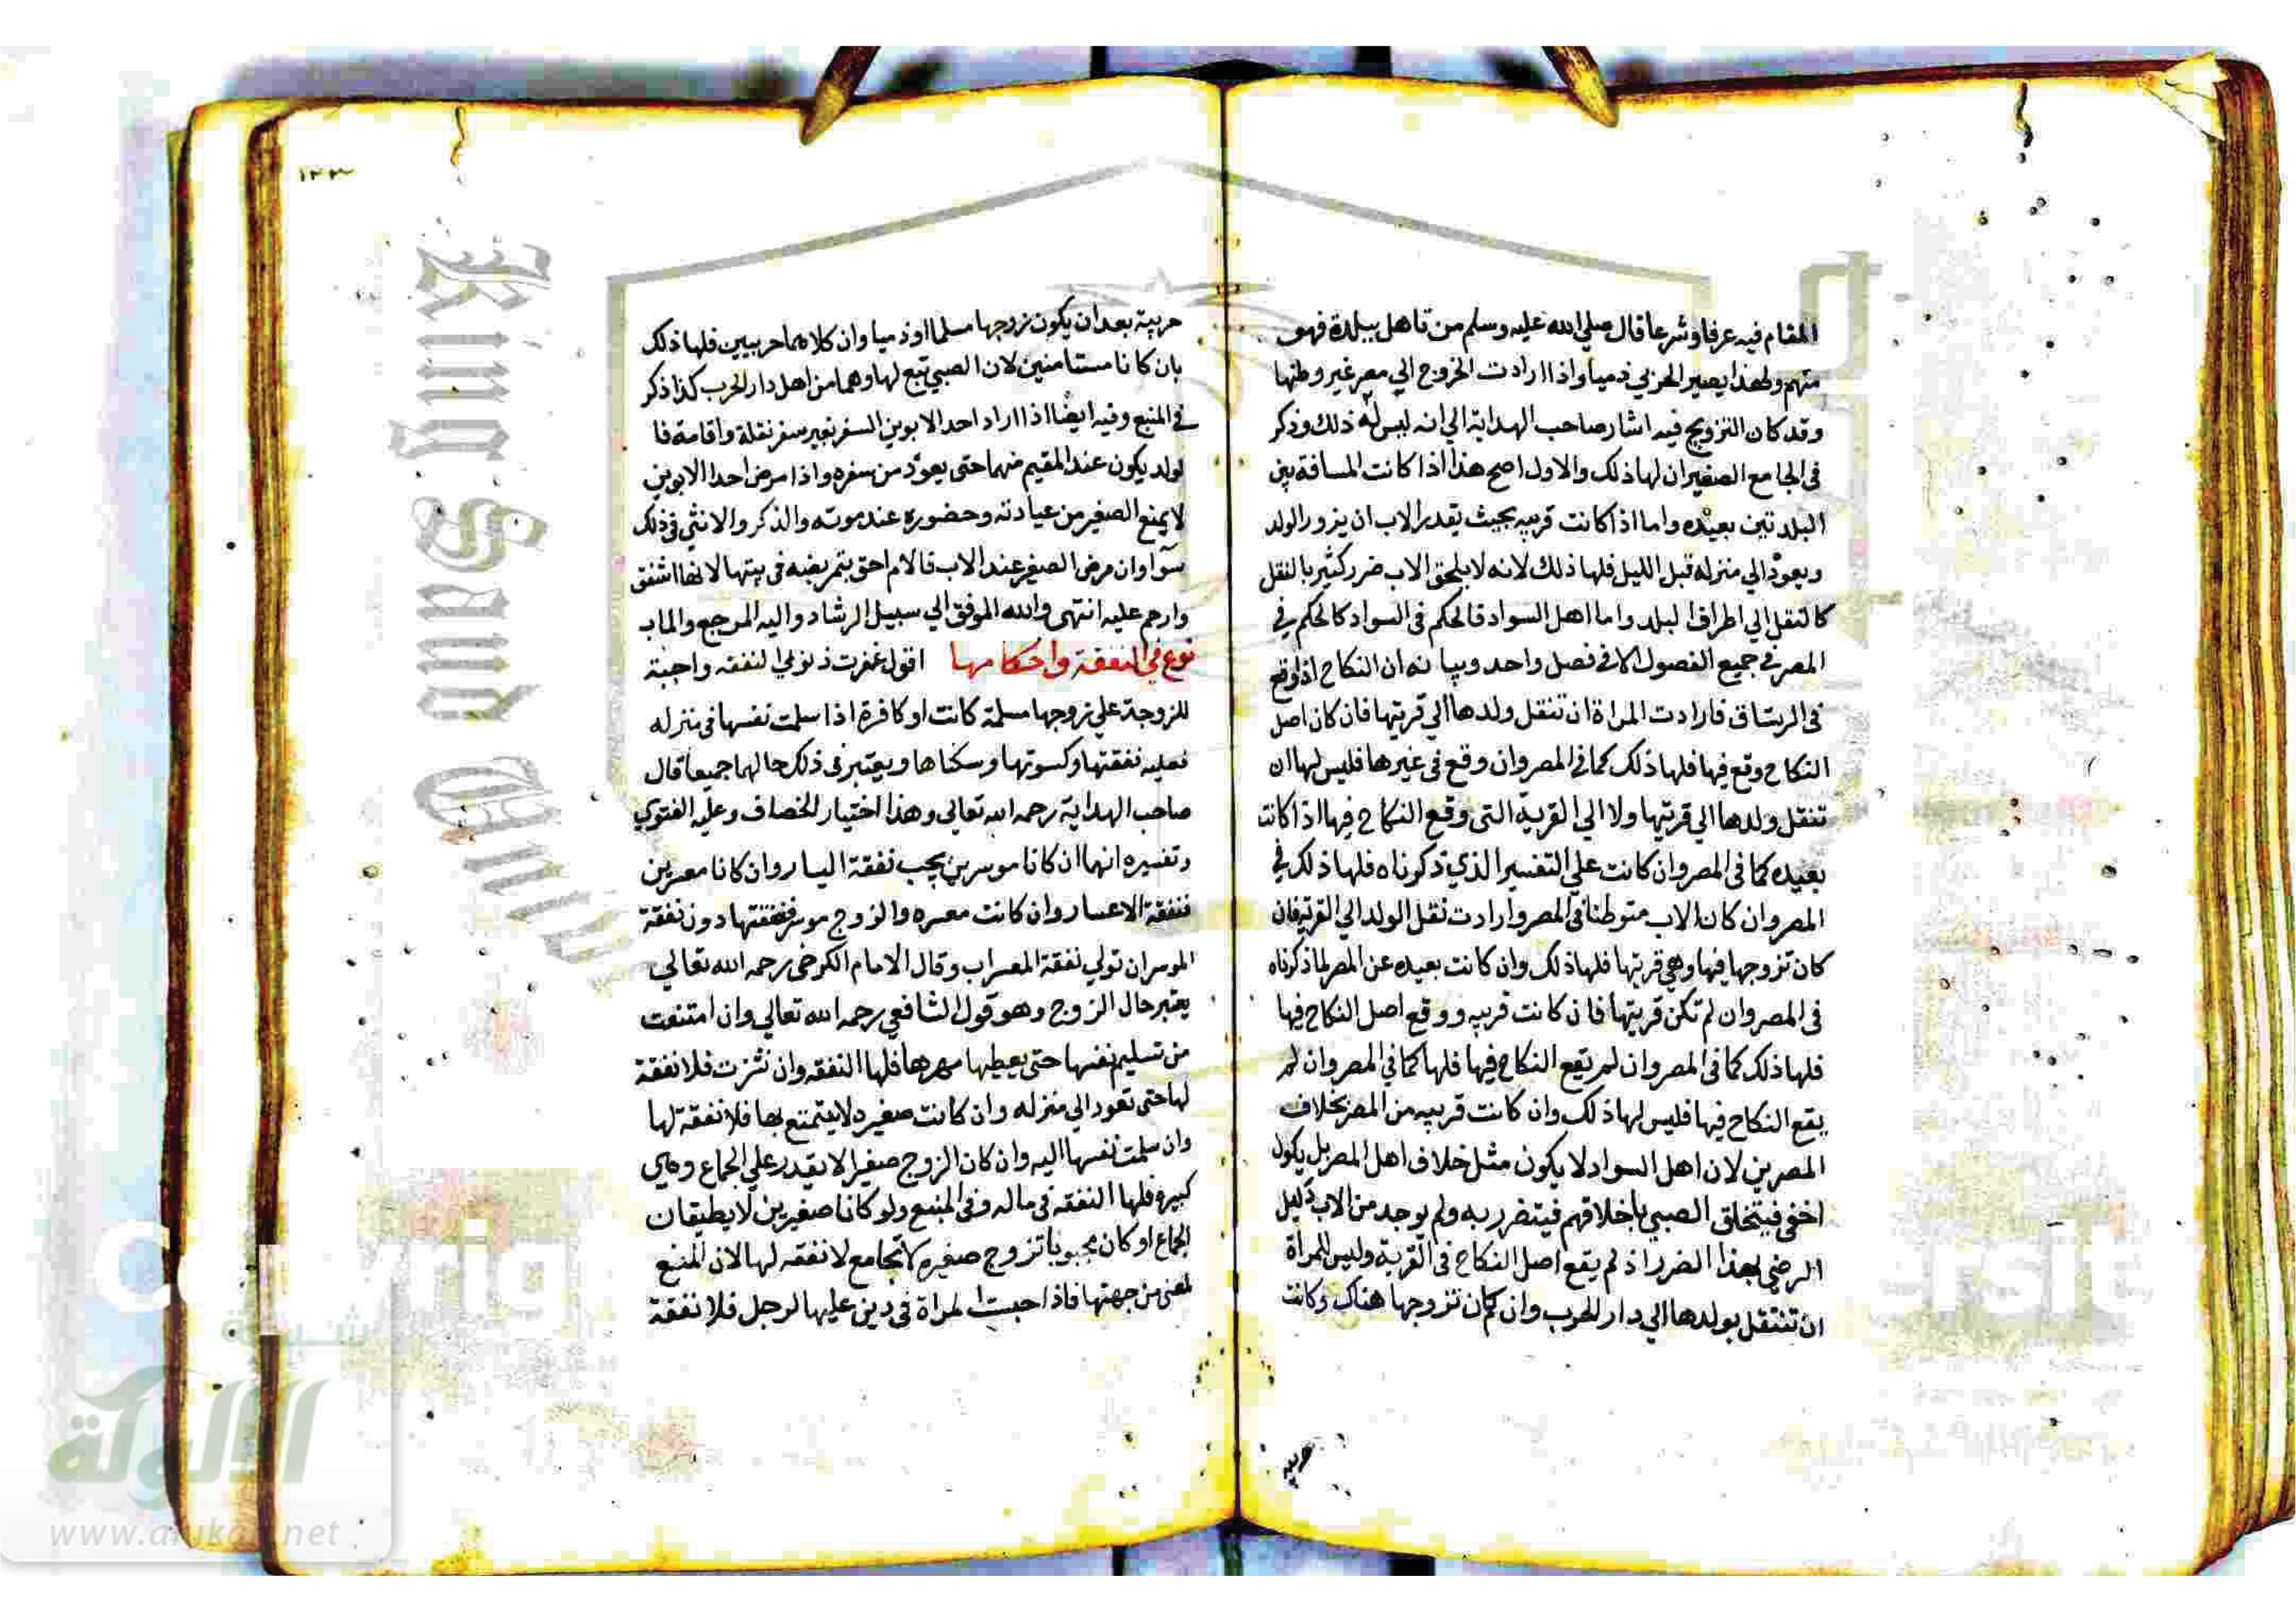 المقام فيه عرفا وشرعا قال صلي الله عليه وسلم من تاهل ببلدة فهو
منهم ولهذا يصير الحربي ذميا واذا ارادت الخروج الي مصر غير وطنها
وقد كان التزويج فيه اشار صاحب الهداية الي انه ليس له ذلك وذكر
في الجامع الصغير ان لها ذلك والاول اصح هذا اذا كانت المسافة بين
البلدتين بعيده واما اذا كانت قريبه بحيث يقدر الاب ان يزور الولد
ويعود الي منزله قبل الليل فلها ذلك لانه لا يلحق الاب ضرر كثير بالنقل
كالنقل الي اطراف البلد واما اهل السواد فالحكم في السواد كالحكم في
المصر في جميع الفصول الا في فصل واحد وبيانه ان النكاح اذا وقع
في الرستاق فارادت المراة ان تنقل ولدها الي قريتها فان كان اصل
النكاح وقع فيها فلها ذلك كما في المصر وان وقع في غيرها فليس لها ان
تنقل ولدها الي قريتها ولا الي القرية التي وقع النكاح فيها اذا كانت
بعيده كما في المصر وان كانت علي التفسير الذي ذكرناه فلها ذلك في
المصر وان كان الاب متوطنا في المصر وارادت نقل الولد الي القرية فان
كان تزوجها فيها وهي قريتها فلها ذلك وان كانت بعيده عن المصر لما ذكرناه
في المصر وان لم تكن قريتها فان كانت قريبه ووقع اصل النكاح فيها
فلها ذلك كما في المصر وان لم يقع النكاح فيها فلها كما في المصر وان لم
يقع النكاح فيها فليس لها ذلك وان كانت قريبه من المصر بخلاف
المصرين لان اهل السواد لا يكون مثل خلاف اهل المصر بل يكون
اخفي فيتخلق الصبي باخلاقهم فيتضرر به ولم يوجد من الاب دليل
الرضي بهذا الضرر اذ لم يقع اصل النكاح في القرية وليس للمراة
ان تنتقل بولدها الي دار الحرب وان كان تزوجها هناك وكانت
حربيه
١٢٣
حربية بعد ان يكون زوجها مسلما او ذميا وان كلاهما حربيين فلها ذلك
بان كانا مستامنين لان الصبي تبع لها وهما من اهل دار الحرب كذا ذكر
في المنبع وفيه ايضا اذا اراد احد الابوين السفر بغير سفر نقلة واقامة فا
لولد يكون عند المقيم منهما حتى يعود من سفره واذا مرض احد الابوين
لا يمنع الصغير من عيادته وحضوره عند موته والذكر والانثي في ذلك
سوآ وان مرض الصغير عند الاب فالام احق بتمريضه في بيتها لانها اشفق
وارحم عليه انتهى والله الموفق الي سبيل الرشاد واليه المرجع والماب
نوع في النفقة واحكامها اقول غفرت ذنوبي النفقه واجبة
للزوجة علي زوجها مسلمة كانت او كافرة اذا سلمت نفسها في منزله
فعليه نفقتها وكسوتها وسكناها ويعتبر في ذلك حالهما جميعا قال
صاحب الهداية رحمه الله تعالي وهذا اختيار الخصاف وعليه الفتوي
وتفسيره انهما ان كانا موسرين يجب نفقة اليسار وان كانا معسرين
فنفقة الاعسار وان كانت معسره والزوج موسر فنفقتها دون نفقة
الموسران تولي نفقة المعسراب وقال الامام الكرخي رحمه الله تعالي
يعتبر حال الزوج وهو قول الشافعي رحمه الله تعالي وان امتنعت
من تسليم نفسها حتى يعطيها مهرها فلها النفقه وان نشزت فلا نفقة
لها حتى تعود الي منزله وان كانت صغيره لا يتمتع بها فلا نفقة لها
وان سلمت نفسها اليه وان كان الزوج صغيرا لا يقدر علي الجماع وهي
كبيرة فلها النفقه في ماله وفي المنبع ولو كانا صغيرين لا يطيقان
الجماع او كان مجبوبا تزوج صغيره لا تجامع لا نفقه لها لان المنع
لمعنى من جهتها فاذا حبست المراة في دين عليها لرجل فلا نفقة
King Saud Univ
شبكة
الالوكة
www.alukah.net